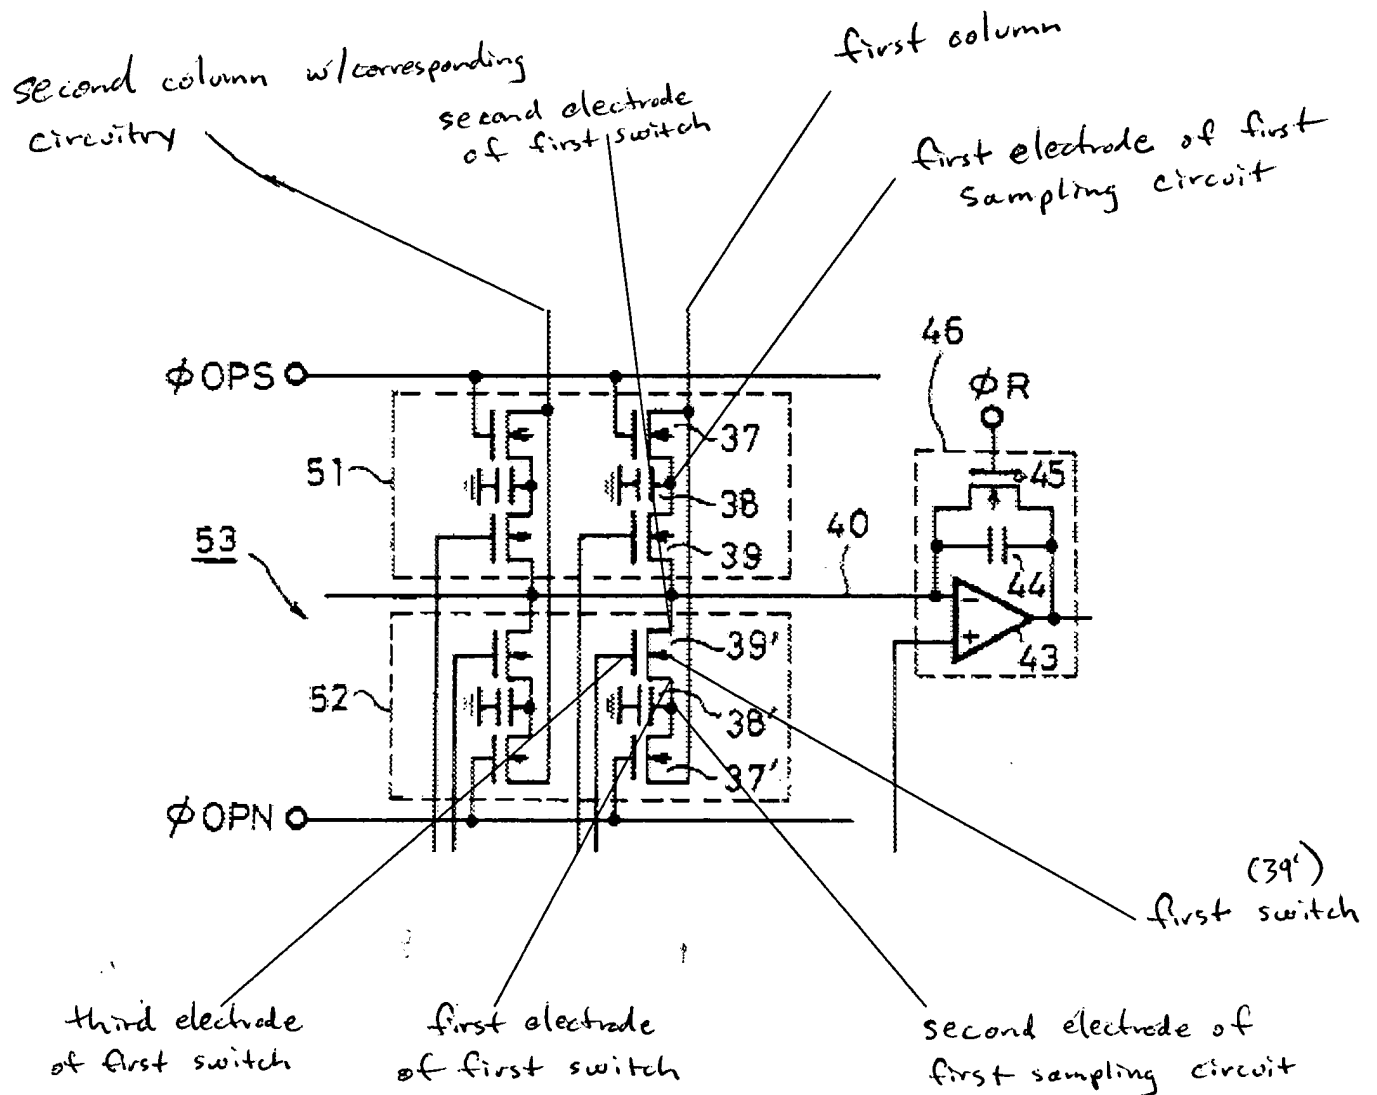 first column
second column w/corresponding
circuitry
second electrode
of first switch
first electrode of first
sampling circuit
46
ϕOPS
ϕR
37
45
51
38
40
53
39
44
39'
43
52
38'
37'
ϕOPN
(39')
first switch
third electrode
of first switch
first electrode
of first switch
second electrode of
first sampling circuit